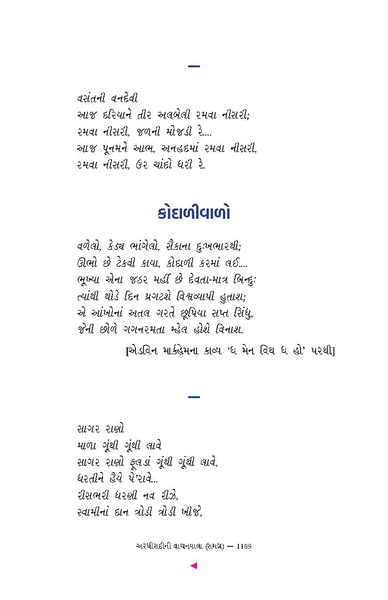 વસંતની વનદેવી
આજ દરિયાને તીર અલબેલી રમવા નીસરી;
રમવા નીસરી, જળની મોજડી રે....
આજ પૂનમને આભ, અનહદમાં રમવા નીસરી,
રમવા નીસરી, ઉર ચાંદો ધરી રે.
કોદાળીવાળો
વળેલો, કેડય ભાંગેલો, સૈકાના દુઃખભારથી;
ઊભો છે ટેકવી કાયા, કોદાળી કરમાં લઈ....
ભૂખ્યા એના જઠર મહીં છે દેવતા-માત્ર બિન્દુઃ
ત્યાંથી થોડે દિન પ્રગટશે વિશ્વવ્યાપી હુતાશ;
એ આંખોનાં અતલ ગરતે છૂપિયા સપ્ત સિંધુ,
જેની છોળે ગગનરમતા મ્હેલ હોશે વિનાશ.
[એડવિન માર્કહેમના કાવ્ય ‘ધ મેન વિથ ધ હો’ પરથી]
સાગર રાણો
માળા ગૂંથી ગૂંથી લાવે
સાગર રાણો ફૂલડાં ગૂંથી ગૂંથી લાવે,
ધરતીને હૈયે પે’રાવે...
રીસભરી ધરણી નવ રીઝે,
સ્વામીનાં દાન ત્રોડી ત્રોડી ખીજે,
અરધીસદીની વાચનયાત્રા (સમગ્ર) — 1189